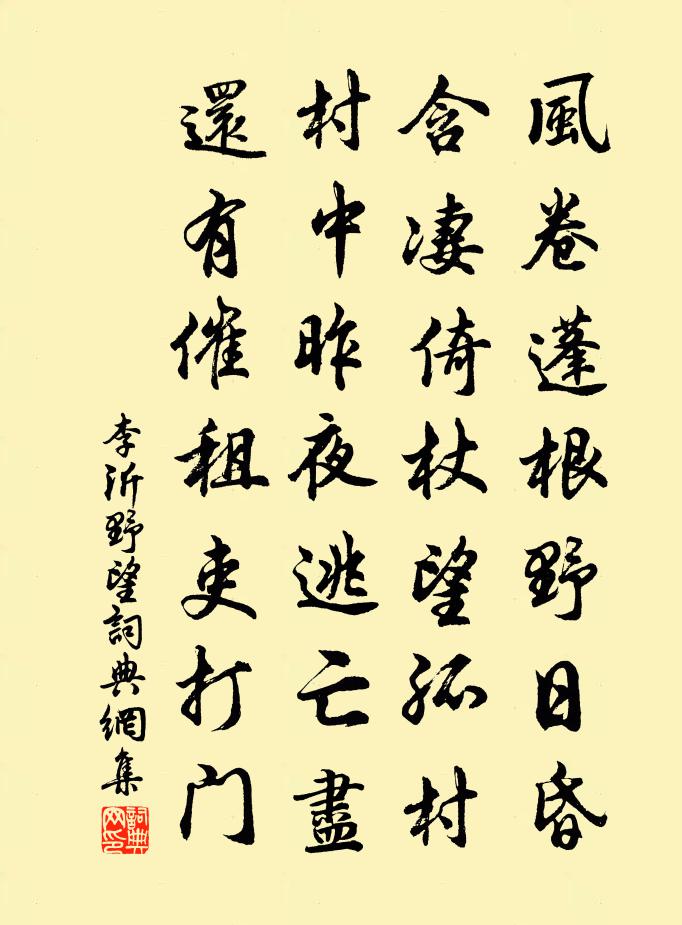 風卷蓬根野日昏
含凄倚杖望孤村
村中昨夜逃亡盡
還有催租吏打門
李沂野望詞典網集
詞典网印